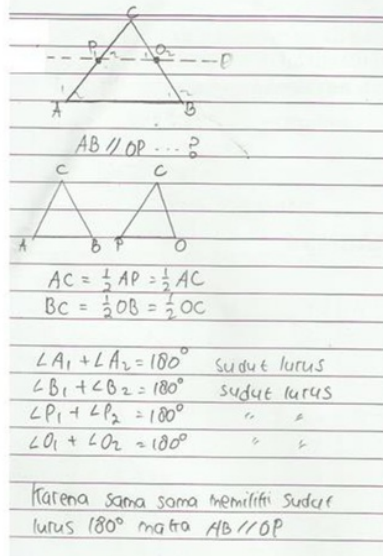 C
P₁ 2 1 O₂ P
1 2 1 2
A B
AB // OP ...?
C C
A B P O
AC = 1/2 AP = 1/2 AC
BC = 1/2 OB = 1/2 OC
∠A₁ + ∠A₂ = 180° sudut lurus
∠B₁ + ∠B₂ = 180° sudut lurus
∠P₁ + ∠P₂ = 180° " "
∠O₁ + ∠O₂ = 180° " "
Karena sama sama memiliki sudut
lurus 180° maka AB // OP